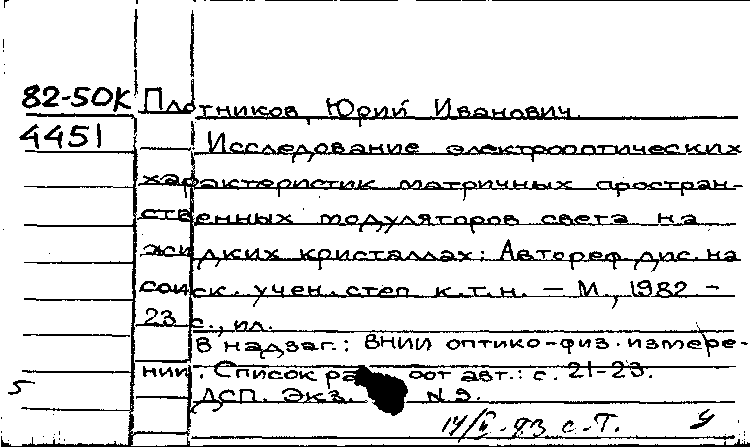 82-50К Плотников, Юрий Иванович.
4451 Исследование электрооптических
характеристик матричных простран-
ственных модуляторов света на
жидких кристаллах: Автореф. дис. на
соиск. учен. степ к.т.н. — М., 1982 -
23 с., ил.
В надзаг.: ВНИИ оптико-физ. измере-
ний. Список работ авт.: с. 21-23.
ДСП. Экз. N 9.
5